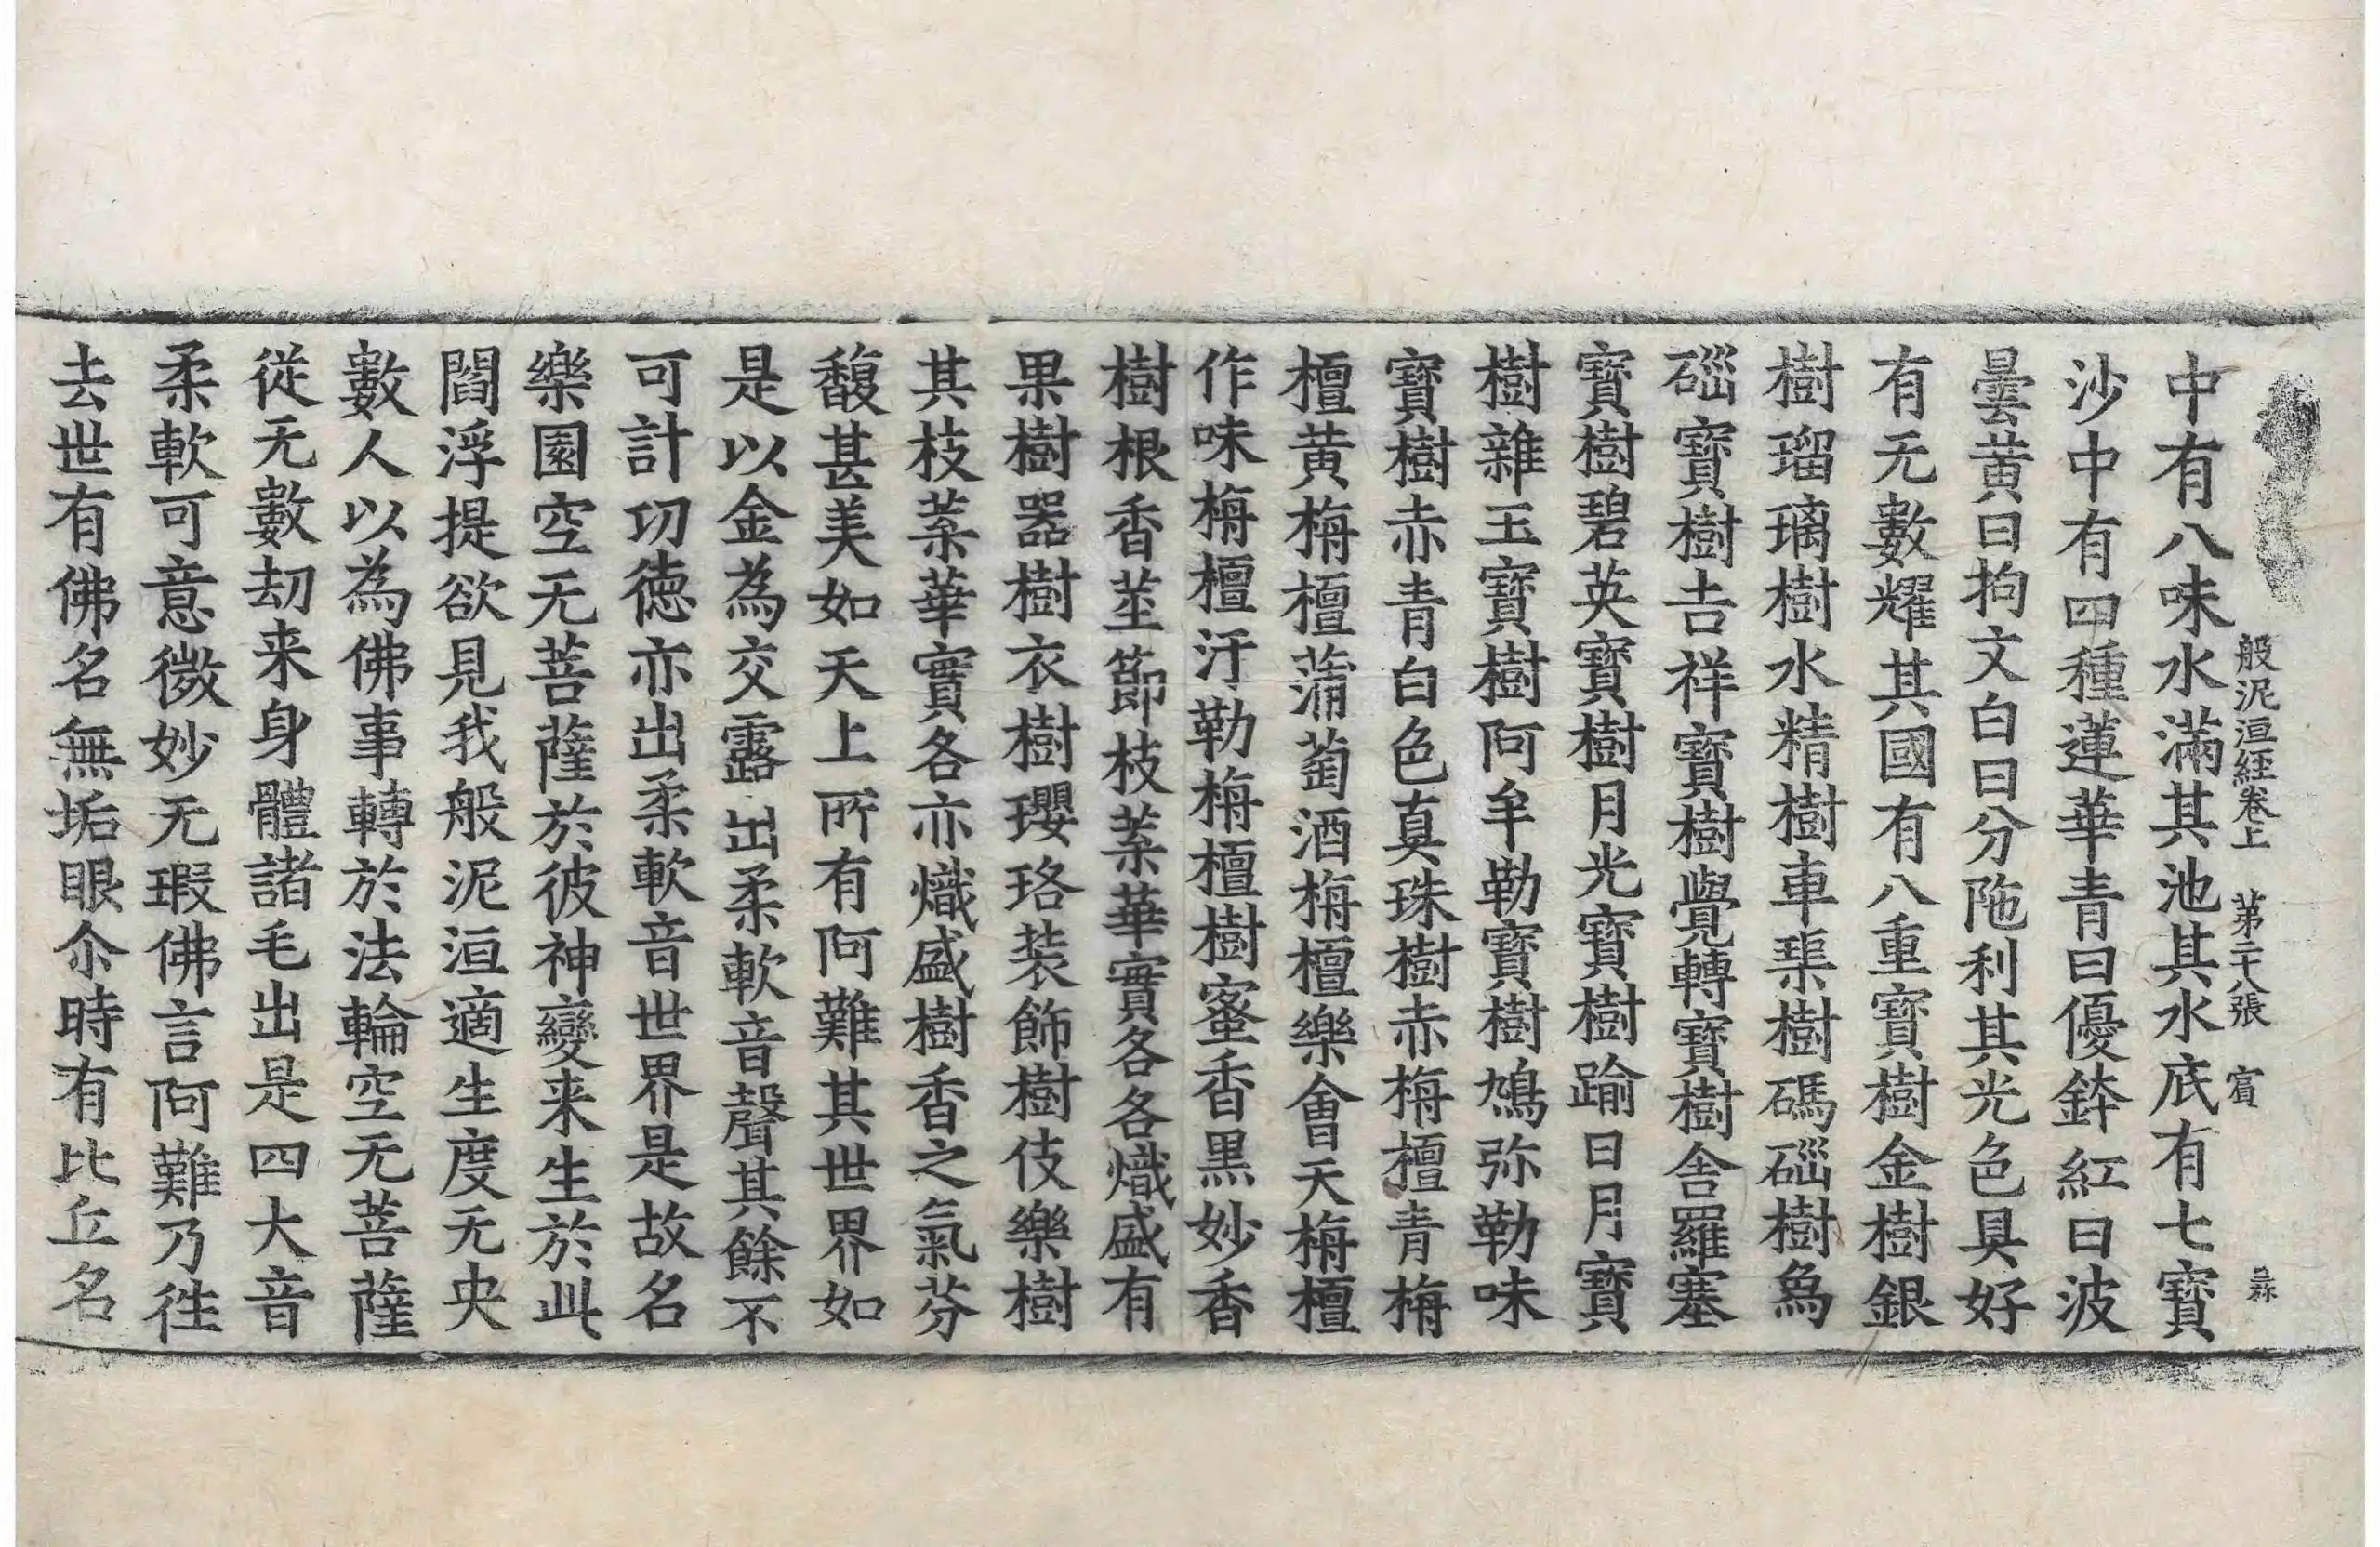 般泥洹經卷上　第二十八張　賔
中有八味水滿其池其水底有七寶
沙中有四種蓮華青曰優鉢紅曰波
曇黄曰拘文白曰分陁利其光色具好
有无數耀其國有八重寶樹金樹銀
樹瑠璃樹水精樹車𤦲樹碼碯樹為
碯寶樹吉祥寶樹覺轉寶樹舍羅塞
寶樹碧英寶樹月光寶樹踰日月寶
樹雜玉寶樹阿牟勒寶樹鳩弥勒味
寶樹赤青白色真珠樹赤栴檀青栴
檀黄栴檀蒲萄酒栴檀樂會天栴檀
作味栴檀汙勒栴檀樹蜜香黒妙香
樹根香莖節枝葉華實各各熾盛有
果樹器樹衣樹瓔珞装飾樹伎樂樹
其枝葉華實各亦熾盛樹香之氣芬
馥甚美如天上所有阿難其世界如
是以金為交露出柔軟音聲其餘不
可計功徳亦出柔軟音世界是故名
樂園空无菩薩於彼神變来生於此
閻浮提欲見我般泥洹適生度无央
數人以為佛事轉於法輪空无菩薩
從无數劫来身體諸毛出是四大音
柔軟可意微妙无瑕佛言阿難乃徃
去世有佛名無垢眼尒時有比丘名